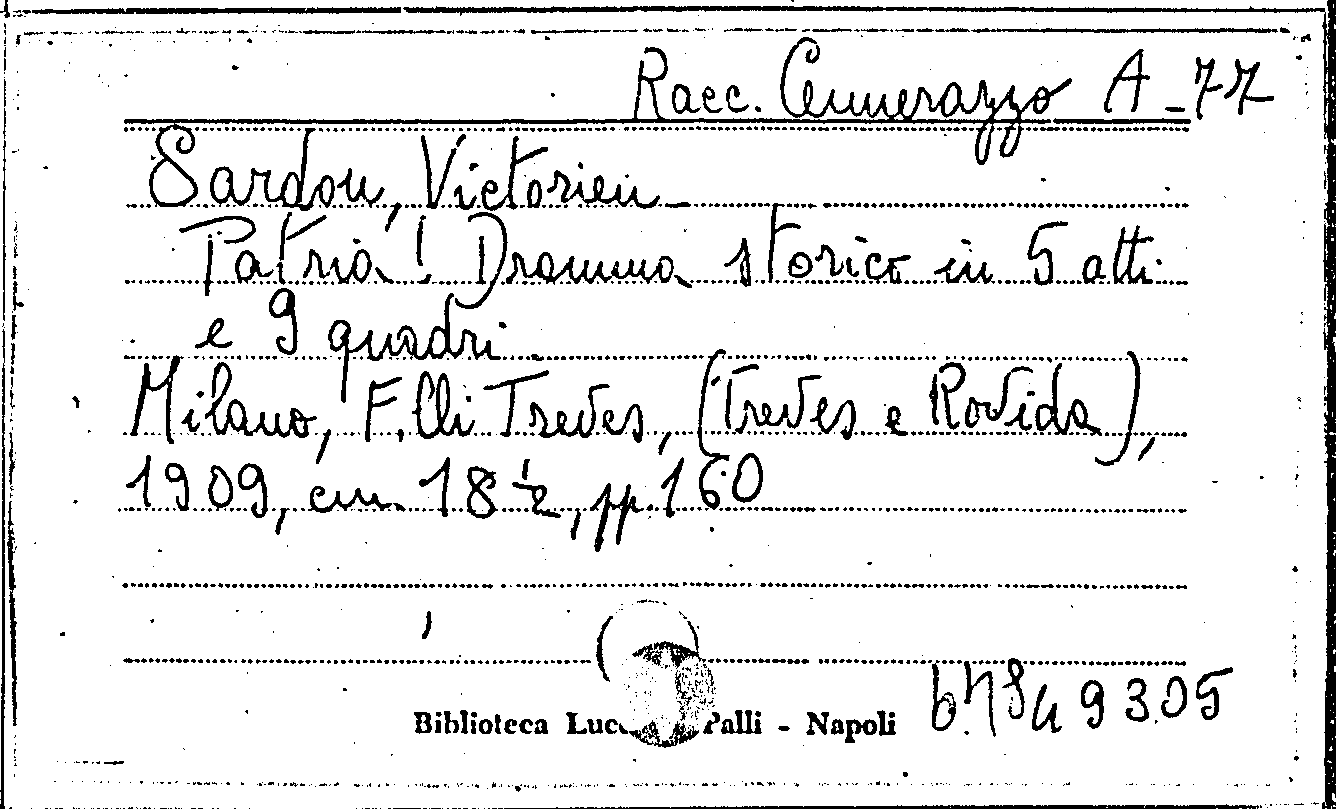 Racc. Cennerazzo A-77
Sardou, Victorien -
Patria! Dramma storico in 5 atti
e 9 quadri.
Milano, F.lli Treves, (Treves e Rovida),
1909, cm. 18 ½, pp. 160
Biblioteca Lucc Palli - Napoli